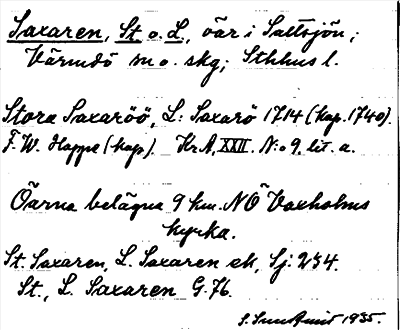 Saxaren, St. o. L., öar i Saltsjön;
Värmdö sn o. skg; Sthlms l.
Stora Saxaröö, L: Saxarö 1714 (kop. 1740).
F. W. Hoppe (kop). Kr A, XXII. N:o 9, lit. a.
Öarna belägna 9 km. NÖ Vaxholms
kyrka.
St. Saxaren, L. Saxaren ek, Gj. 234.
St., L. Saxaren G. 76.
1935.